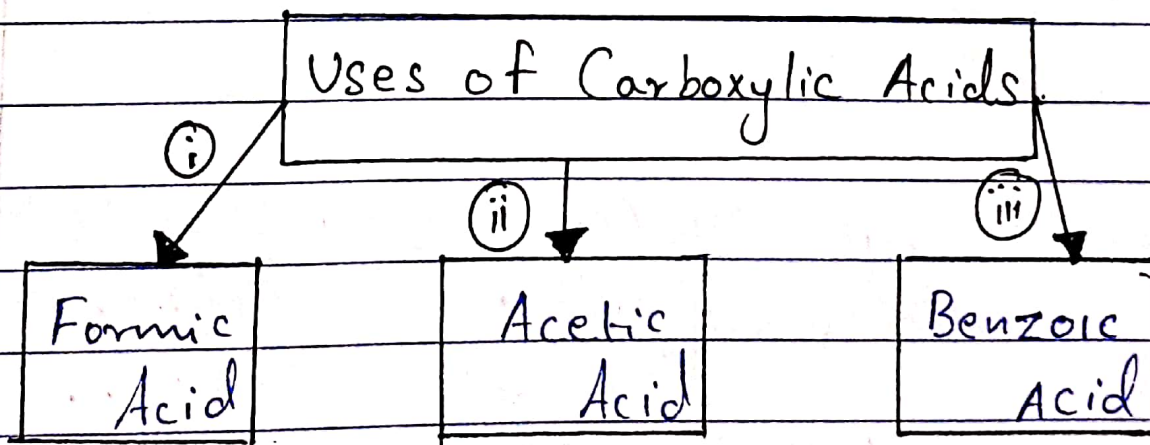 Uses of Carboxylic Acids.
i
ii
iii
Formic
Acid
Acetic
Acid
Benzoic
Acid